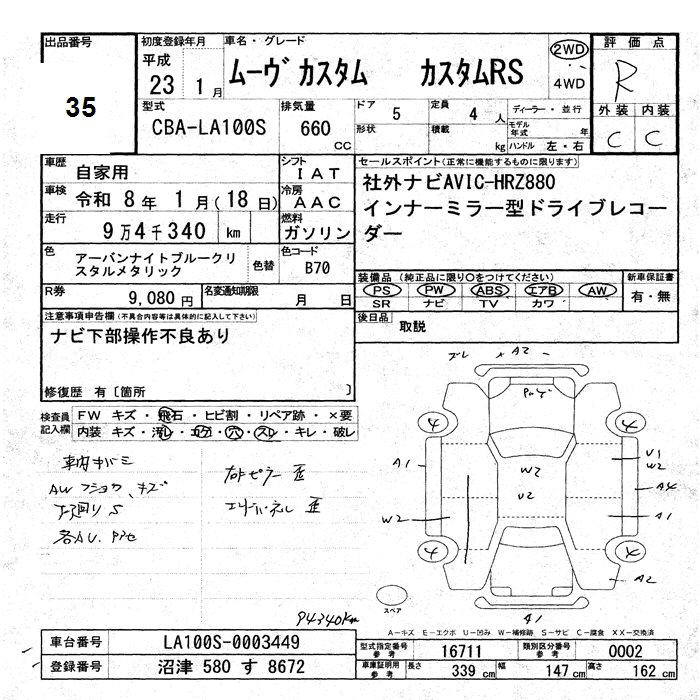 出品番号
35
初度登録年月
平成
23 1月
車名・グレード
ムーヴ カスタム カスタムRS
2WD
4WD
評価点
R
外装 内装
C C
型式
CBA-LA100S
排気量
660 CC
ドア 5
定員 4 人
形状
積載 kg
ディーラー・並行
モデル年式 年
ハンドル 左・右
車歴 自家用
シフト IAT
車検 令和 8年 1月(18日)
冷房 AAC
走行 9万4千340 km
燃料 ガソリン
色 アーバンナイトブルークリスタルメタリック
色替
色コード B70
R券 9,080円
名変通知期限 月 日
セールスポイント(正常に機能するものに限ります)
社外ナビAVIC-HRZ880
インナーミラー型ドライブレコー
ダー
装備品 (純正品に限り○をつけてください)
新車保証書
PS PW ABS エアB AW
SR ナビ TV カワ
有・無
後日品 取説
注意事項申告欄(不具合内容等は具体的に記入して下さい)
ナビ下部操作不良あり
修復歴 有〔箇所 〕
検査員記入欄
FW キズ・飛石・ヒビ割・リペア跡・×要
内装 キズ・汚レ・コゲ・穴・スレ・キレ・破レ
車内キバミ
AW フショク、キズ
下廻りS
各AU、PPセ
エクボパネル 歪
ズレ A2
A1
W2
U2
U1
W2
A4
A1
W2
A2
A1
スペア
94340Km
A-キズ E-エクボ U-凹み W-補修跡 S-サビ C-腐食 XX-交換済
車台番号 LA100S-0003449
登録番号 沼津 580 す 8672
型式指定番号 参考 16711
類別区分番号 参考 0002
車庫証明用 参考
長さ 339 cm
幅 147 cm
高さ 162 cm